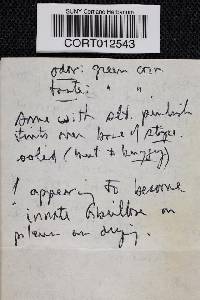 SUNY Cortland Herbarium
CORT012543
odor: green corn
taste: " "
Some with slt. pinkish
tints over base of stipe
ooled (
! appearing to become
innate fibrillose on
pileus on drying.